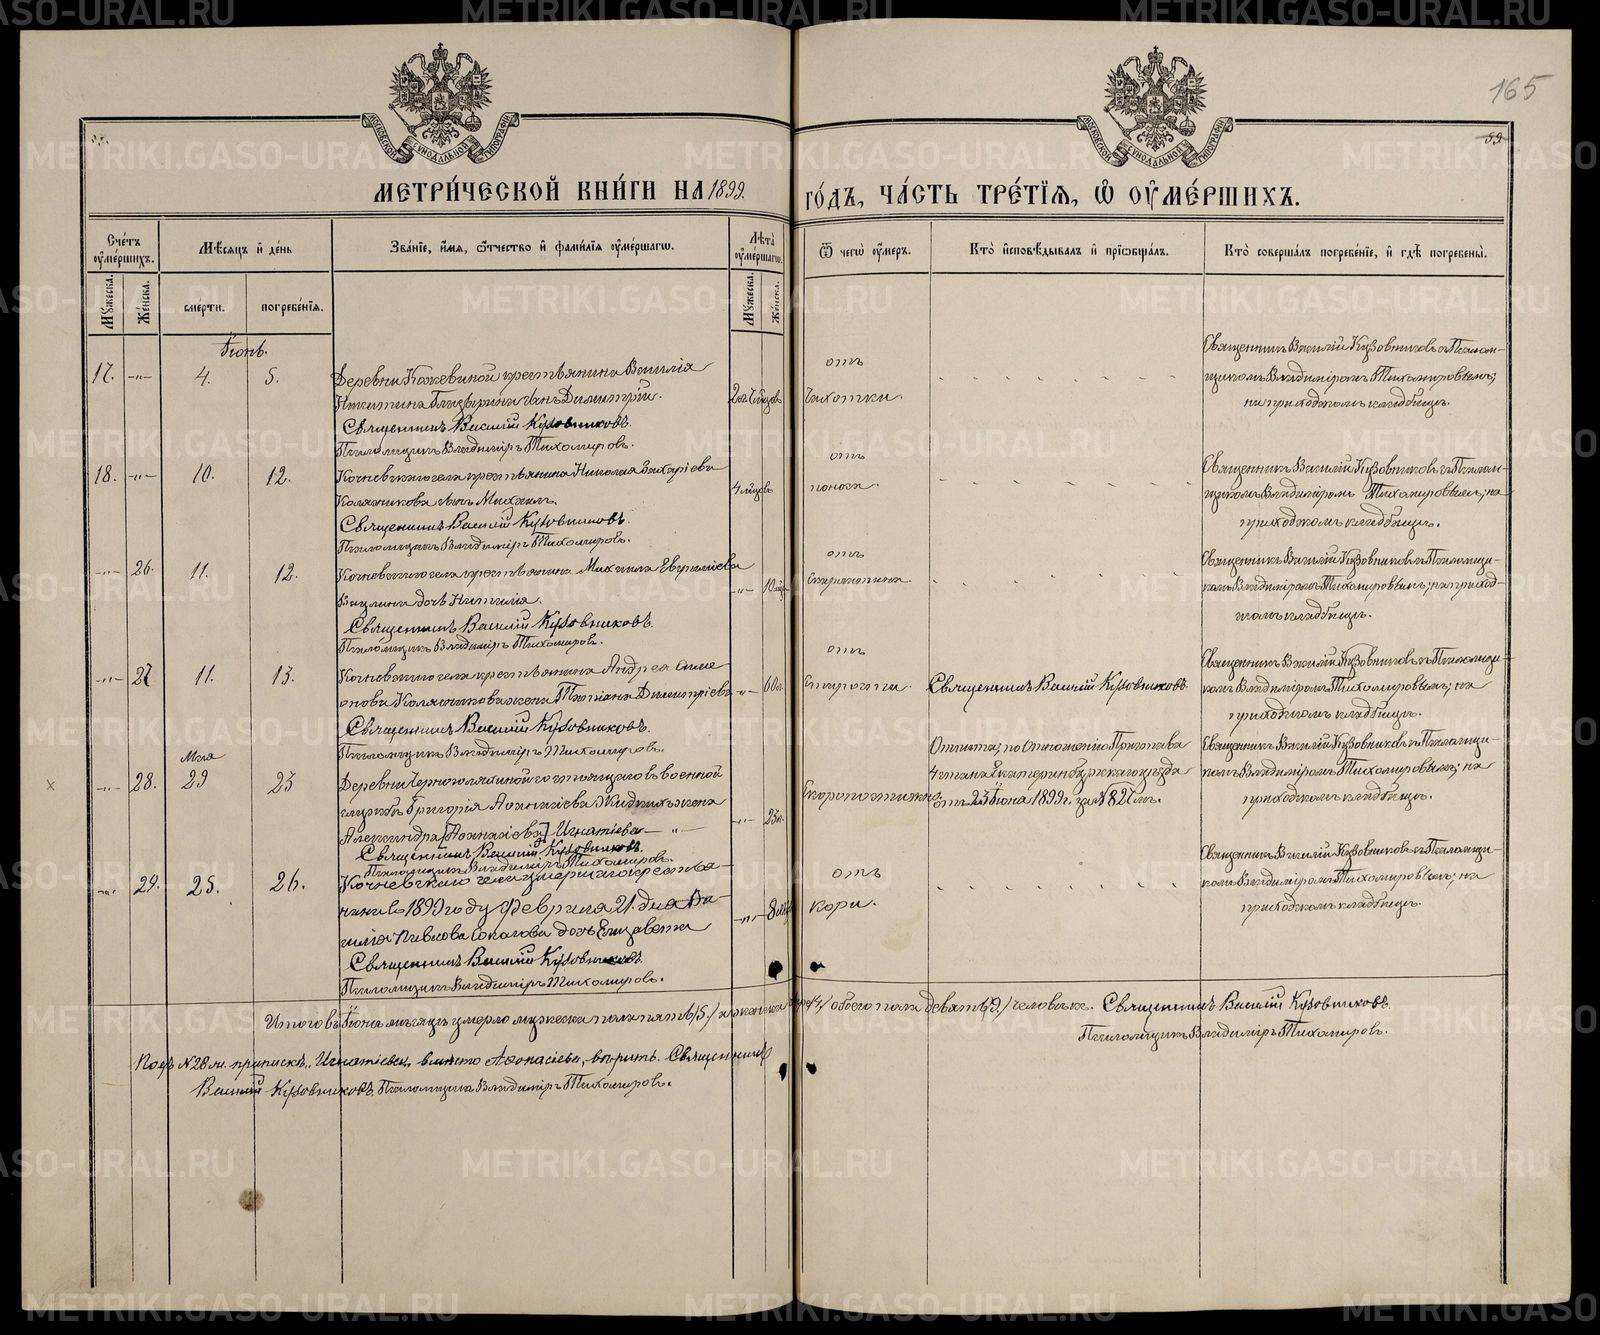 165
59
МЕТРИ́ЧЕСКОЙ КНИ́ГИ НА 1899. ГО́ДЪ, ЧА́СТЬ ТРЕ́ТІЯ, Ѡ ОУМЕ́РШИХЪ.
МОСКОВСКОЙ СѴНОДАЛЬНОЙ ТИПОГРАФІИ
МОСКОВСКОЙ СѴНОДАЛЬНОЙ ТИПОГРАФІИ
Сче́тъ оуме́ршихъ.
Мѣсяцъ и де́нь
Зва́ніе, и́мя, ѻ́тчество и фами́лія оуме́ршагѡ.
Лѣта̀ оуме́ршагѡ.
Ѿ чегѡ̀ оу́меръ.
Кто̀ исповѣ́дывалъ и пріѡбща́лъ.
Кто̀ соверша́лъ погребе́ніе, и гдѣ̀ погребены̀.
Му́жеска.
Же́нска.
сме́рти.
погребе́нія.
Му́жеска.
Же́нска.
Іюнь.
17. -„- 4. 5.
Деревни Кожевиной крестьянина Василія
Никитина Глазырина сынъ Димитрій.
Священникъ Василій Кузовниковъ.
Псаломщикъ Владиміръ Тихомировъ.
отъ
чахотки.
Священникъ Василій Кузовниковъ съ Псалом-
щикомъ Владиміромъ Тихомировымъ;
на приходскомъ кладбищѣ.
18. -„- 10. 12.
Кочневскаго села крестьянина Николая Захаріева
Колясникова сынъ Михаилъ.
Священникъ Василій Кузовниковъ.
Псаломщикъ Владиміръ Тихомировъ.
4 мѣсяцовъ
отъ
поноса.
Священникъ Василій Кузовниковъ съ Псалом-
щикомъ Владиміромъ Тихомировымъ; на
приходскомъ кладбищѣ.
-„- 26. 11. 12.
Кочневскаго села крестьянина Михаила Евгеніева
дочь Наталія.
Священникъ Василій Кузовниковъ.
Псаломщикъ Владиміръ Тихомировъ.
-„- 10 мѣс.
отъ
скарлатина.
Священникъ Василій Кузовниковъ съ Псаломщи-
комъ Владиміромъ Тихомировымъ; на приход-
скомъ кладбищѣ.
-„- 27 11. 13.
Кочневскаго села крестьянина Андрея Симе-
онова Колясникова жена Татіана Димитріева
Священникъ Василій Кузовниковъ.
Псаломщикъ Владиміръ Тихомировъ.
-„- 60 л.
отъ
старости.
Священникъ Василій Кузовниковъ.
Священникъ Василій Кузовниковъ съ Псаломщи-
комъ Владиміромъ Тихомировымъ; на
приходскомъ кладбищѣ.
Мая
х -„- 28. 29 23
Деревни Черноголяхиной состоящаго въ военной
службѣ Григорія жена
Александра [Аѳанасіева] Игнатіева -„-
Священникъ Василій Кузовниковъ.
Псаломщикъ Владиміръ Тихомировъ.
-„- 23 л.
Скоропостижно.
Отпѣта; по отношенію Пристава
4 стана Екатеринбургскаго уѣзда
отъ 23 Іюня 1899 г. за № 827 мъ.
Священникъ Василій Кузовниковъ съ Псаломщи-
комъ Владиміромъ Тихомировымъ; на
приходскомъ кладбищѣ.
-„- 29. 25. 26.
Кочневскаго села умершаго крестья-
нина въ 1899 году Февраля 21. дня Ва-
силія Соколова дочь Елизавета
Священникъ Василій Кузовниковъ.
Псаломщикъ Владиміръ Тихомировъ.
-„- 8 мѣс.
отъ
кори.
Священникъ Василій Кузовниковъ съ Псаломщи-
комъ Владиміромъ Тихомировымъ; на
приходскомъ кладбищѣ.
Итого въ Іюнѣ мѣсяцѣ умерло мужеска пола пять /5./ а женска /4./ обоего пола девять /9./ человѣкъ. Священникъ Василій Кузовниковъ.
Псаломщикъ Владиміръ Тихомировъ.
Подъ № 28 м. приписка „Игнатіева„ вмѣсто Аѳонасіева, вѣрить. Священникъ
Василій Кузовниковъ. Псаломщикъ Владиміръ Тихомировъ.
METRIKI.GASO-URAL.RU